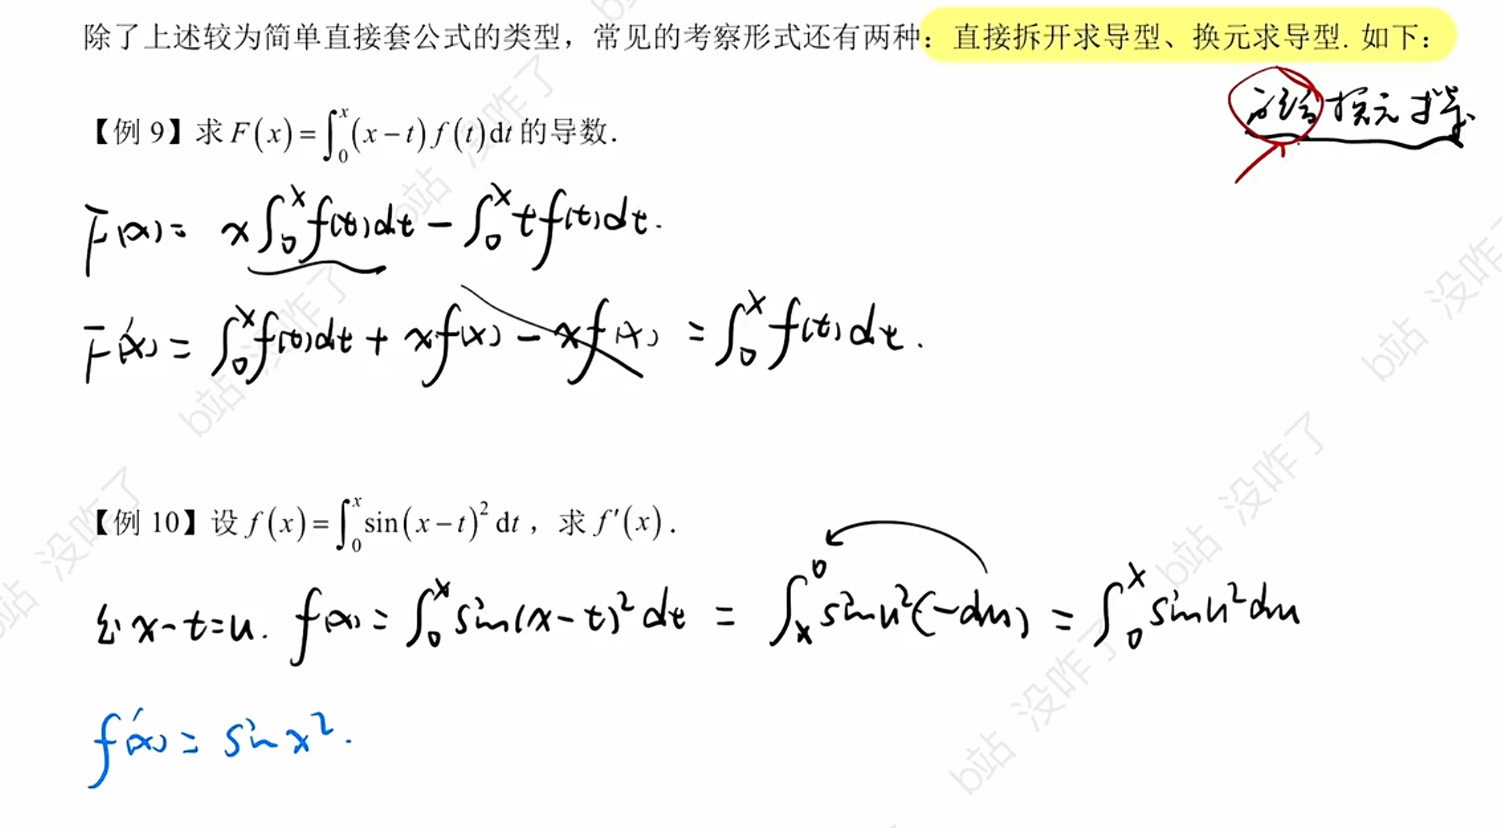 除了上述较为简单直接套公式的类型，常见的考察形式还有两种：直接拆开求导型、换元求导型. 如下：
换元求导
【例 9】求 F(x)=∫₀ˣ(x−t)f(t)dt 的导数.
F(x)= x∫₀ˣf(t)dt − ∫₀ˣtf(t)dt.
F'(x)= ∫₀ˣf(t)dt + xf(x) − xf(x) = ∫₀ˣf(t)dt.
【例 10】设 f(x)=∫₀ˣsin(x−t)²dt，求 f′(x).
令 x−t=u. f(x)= ∫₀ˣsin(x−t)²dt = ∫ₓ⁰sinu²(−du) = ∫₀ˣsinu²du
f'(x)= sinx².
b站 没咋了
b站 没咋了
b站 没咋了
b站 没咋了
b站 没咋了
b站 没咋了